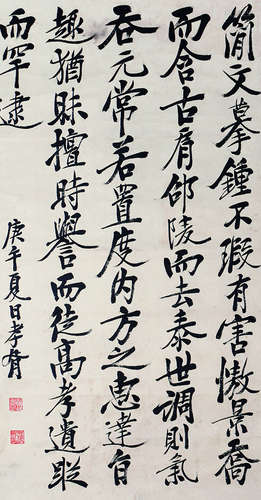 簡文摹鍾不瑕有害傲景喬
而含古脣邵陵而去泰世調則氣
吞元常若置度內方之惠達自
趣猶昧擅時譽而徒高孝遺蹤
而罕逮
庚午夏日孝胥